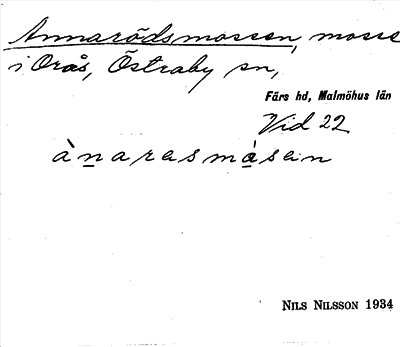 Annarödsmossen, mosse
i Orås, Östraby sn,
Färs hd, Malmöhus län
Vid 22
ànaresmåsen
NILS NILSSON 1934